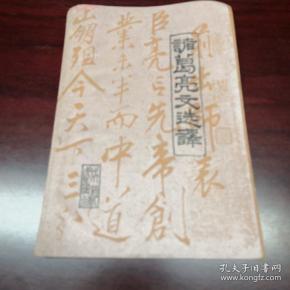 諸葛亮文选譯
前出師表
臣亮言先帝創
業未半而中道
崩殂今天下三
孔夫子旧书网